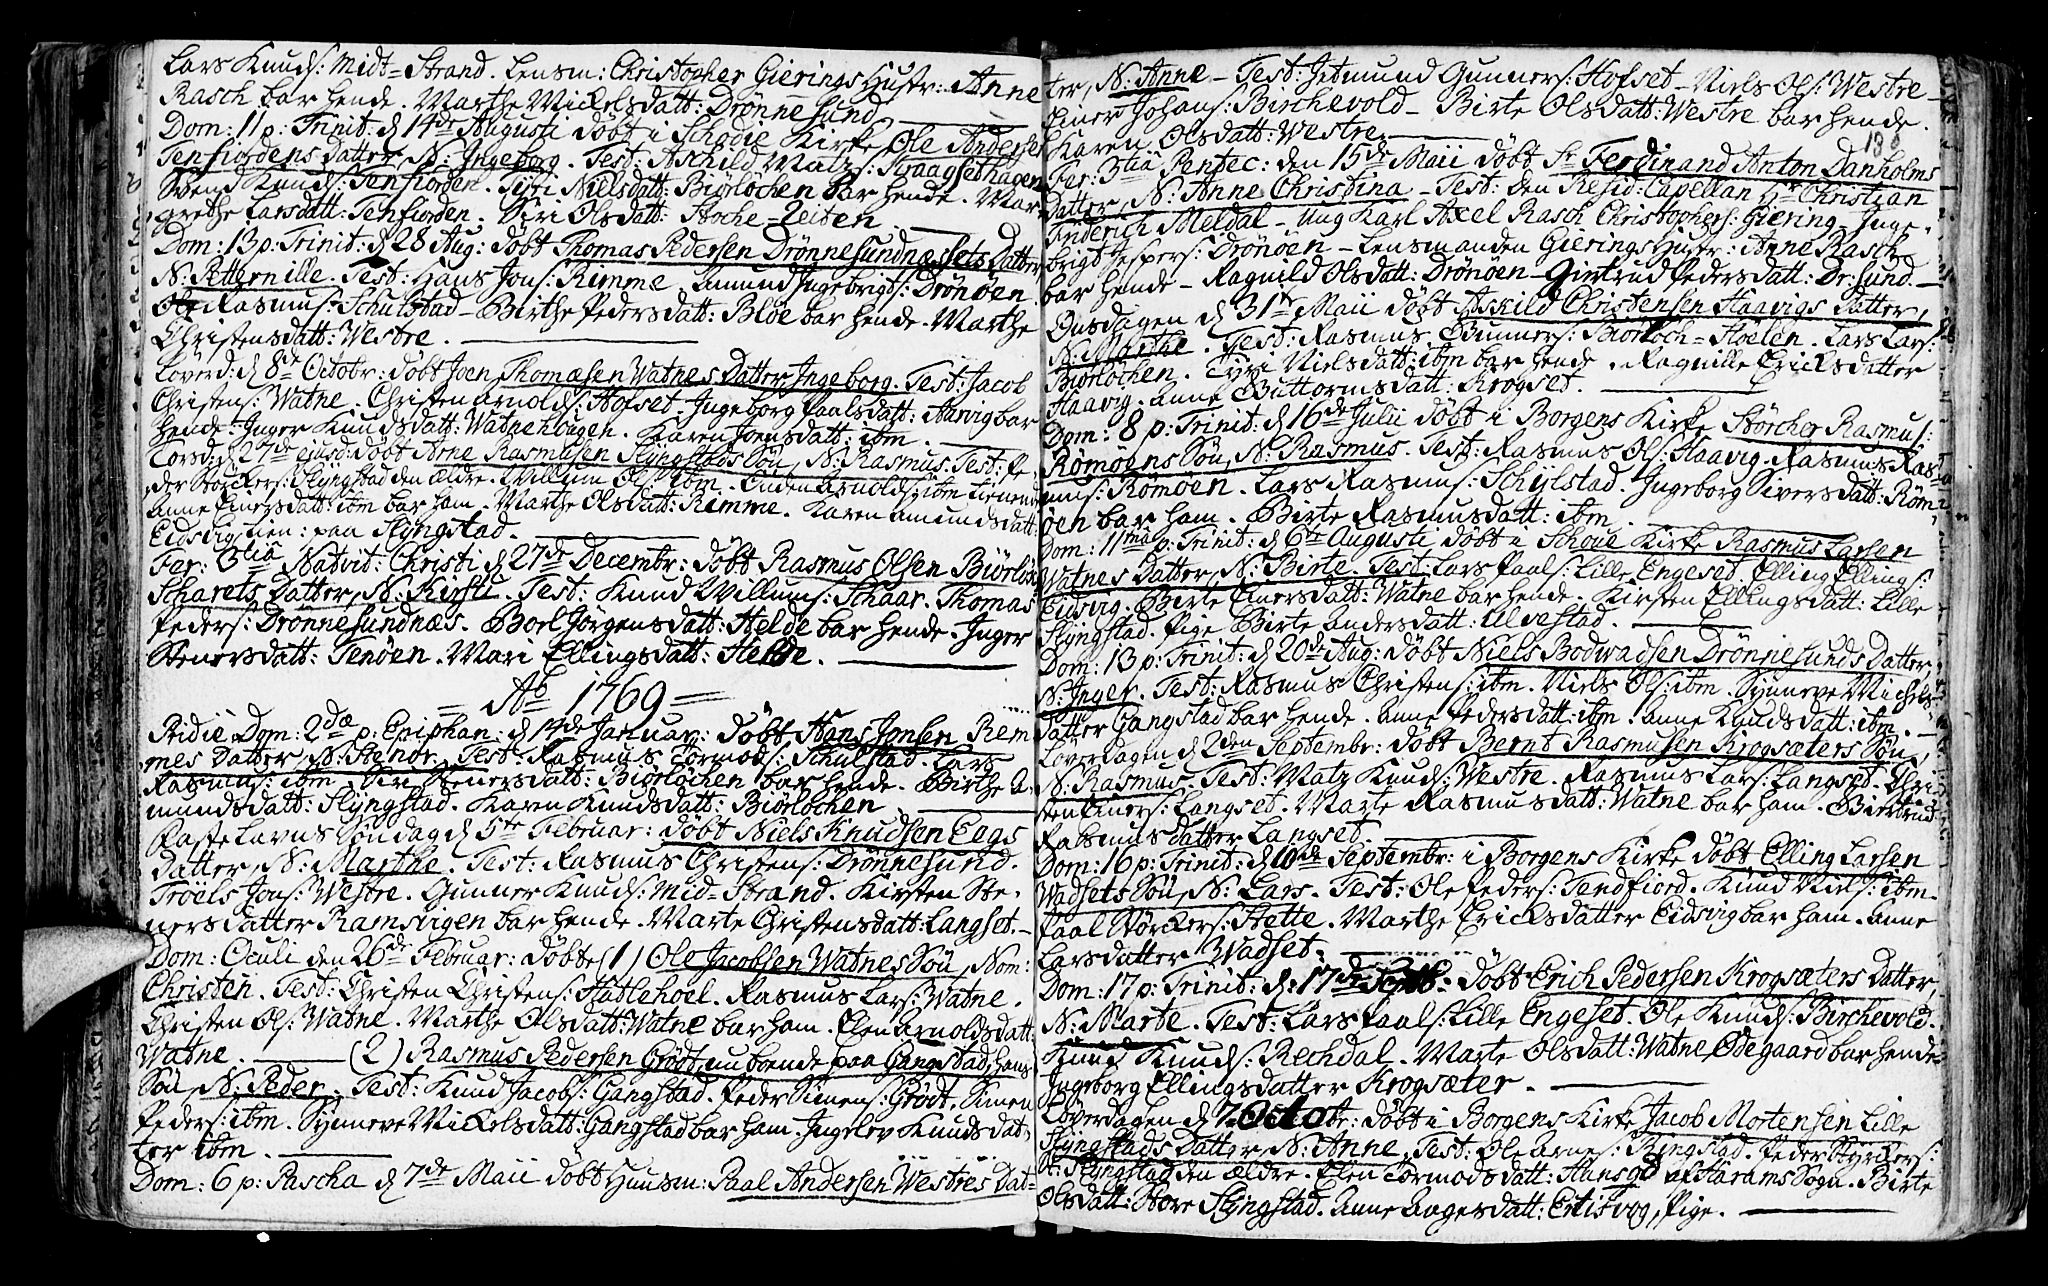 Lars Knuds: Midt=Strand. Lensm: Christopher Gierings Hustr: Anne
Rasch bar hende. Marthe Mickelsdatt: Drønnesund
Dom: 11 p: Trinit: d 14de Augusti døbt i Schodie Kirke Ole Andersen
Tenfiordens Datter, N: Ingeborg. Test: Aschild Matzs: Kraagsethagen
Svend Knuds: Tenfiorden. Siri Nielsdatt: Biørløchen bar hende. Mar-
grethe Larsdatt: Tenfiorden. Siri Olsdatt: Store-Zeiten
Dom: 13 p: Trinit: d 28 Aug: døbt Thomas Pedersen Drønnesundnesets Datter
N: Petternille. Test: Hans Jons: Rimme. Amund Ingebrigts: Drønøen
Rasmus: Schulstad – Birthe Pedersdatt: Bloe bar hende. Marthe
Christensdatt: Westre.
Løverd: d 8de Octobr: døbt Joen Thomæsen Watnes Datter Ingeborg. Test: Jacob
Christens: Watne. Christen Arnolds: Hofset. Ingeborg Paalsdatt: Aarvig bar
hende. Inger Knudsdatt: Watnehoigen. Karen Joensdatt: ibm.
Torsd: d 27de ejusd: døbt Arne Rasmusen Slyngstads Søn, N: Rasmus. Test: Pe-
der Støckers: Slyngstad den ældre. Willum Ols: ibm. Enden Arnolds: ibm tienende
Anne Einersdatt: ibm bar ham. Marthe Olsdatt: Rimme. Karen Amundsdatt:
Eidsvig tien: paa Slyngstad.
Fer: 3tia Nativit: Christi d 27de Decembr: døbt Rasmus Olsen Biørløch
Scharets Datter, N: Kirsti. Test: Knud Willums: Schaar. Thomas
Peders: Drønnesundnæs. Borl Jørgensdatt: Helde bar hende. Inger
Stenersdatt: Tenøen. Mari Ellingsdatt: Helde.
= Ao 1769 =
Pridie Dom: 2dæ p: Epiphan: d 14de Januar: døbt Hans Jonsen Rem-
mes Datter, N: Stenor. Test: Rasmus Tormods: Schulstad. Lars
Rasmus: ibm. Siri Stenersdatt: Biørløchen bar hende. Birthe A-
mundsdatt: Slyngstad. Karen Knudsdatt: Biørløchen
Fastelavns Søndag d 5te Februar: døbt Niels Knudsen Eegs
Datter, N: Marthe. Test: Rasmus Christens: Drønnesund.
Troels Jons: Westre. Gunner Knuds: Mid=Strand. Kirsten Ste-
nersdatter Ramsvigen bar hende. Marte Christensdatt: Langset.
Dom: Oculi den 26de Februar: døbte (1) Ole Jacobsen Watnes Søn, Nom:
Christen. Test: Christen Christens: Hatlehoel. Rasmus Lars: Watne.
Christen Ols: Watne. Marthe Olsdatt: Watne bar ham. Elen Arnoldsdatt:
Watne. (2) Rasmus Pedersen Grødt, nu boende paa Gangstad, hans
Søn, N: Peder. Test: Knud Jacobs: Gangstad. Peder Simens: Grødt. Simen
Peders: ibm. Synneve Mickelsdatt: Gangstad bar ham. Ingelev Knudsdat-
ter ibm.
Dom: 6 p: Pascha d 7de Maii døbt Huusm: Paal Andersen Westres Dat=
ter, N: Anne – Test: Jetmund Gunners: Hofset – Niels Ols: Westre –
Einer Johans: Birchevold – Birte Olsdatt: Westre bar hende.
Karen Olsdatt: Westre.
Fer: 3tia Pentec: den 15de Maii døbt Sr Ferdinand Anton Danholms
Datter, N: Anne Christina – Test: den Resid: Capellan Hr Christian
Friderich Meldal – Ung Karl Axel Rasch Christophers: Giering – Inge-
brigt Jespers: Drønøen – Lensmanden Gierings Hustr: Anne Rasch
bar hende – Ragnild Olsdatt: Drønøen – Giertrud Pedersdatt: Dr: sund.
Onsdagen d 31te Maii døbt Askild Christensen Haavigs Datter,
N: Marthe. Test: Rasmus Gunners: Biørloch=Hoelen. Lars Lars:
Biørlochen. Tyri Nielsdatt: ibm bar hende. Ragnille Ericksdatter
Haavig. Anne Guttormsdatt: Krogset.
Dom: 8 p: Trinit: d 16de Julii døbt i Borgens Kirke Størcher Rasmus:
Rømoens Søn, N: Rasmus. Test: Rasmus Ols: Haavig. Rasmus Ras-
mus: Rømoen. Lars Rasmus: Schylstad. Ingeborg Siversdatt: Røm-
øen bar ham. Birte Rasmusdatt: ibm.
Dom: 11ma p: Trinit: d 6te Augusti døbt i Schoue Kirke Rasmus Larsen
Watnes Datter, N: Birte. Test: Lars Paals: Lille Engeset. Elling Ellings:
Eidsvig. Birte Einersdatt: Watne bar hende. Kirsten Ellingsdatt: Lille
Slyngstad. Pige Birte Andersdatt: Ulvestad.
Dom: 13 p: Trinit: d 20de Aug: døbt Niels Bodwadsen Drønnesunds Datter,
N: Inger. Test: Rasmus Christens: ibm. Niels Ols: ibm. Synneve Michels-
datter Gangstad bar hende. Anne Pedersdatt: ibm. Anne Knudsdatt: ibm.
Løverdagen d 2den Septembr: døbt Bernt Rasmusen Krogsæters Søn,
N: Rasmus. Test: Matz Knuds: Westre. Rasmus Lars: Langset. Chri-
sten Einers: Langset. Marte Rasmusdatt: Watne bar ham. Giertrud
Rasmusdatter Langset.
Dom: 16 p: Trinit: d 10de Septembr: i Borgens Kirke døbt Elling Larsen
Wadsets Søn, N: Lars. Test: Ole Peders: Tendfiord. Knud Niels: ibm.
Paal Størckers: Stette. Marthe Ericksdatter Eidsvig bar ham. Anne
Larsdatter Wadset.
Dom: 17 p: Trinit: d: 17de Septb: døbt Erich Pedersen Krogsæters Datter,
N: Marte. Test: Lars Paals: Lille Engeset. Ole Knuds: Birchevold.
Knud Knuds: Rechdal. Marte Olsdatt: Watne Ødegaard bar hende
Ingeborg Ellingsdatter Krogsæter.
Løverdagen d 7 Octobr: døbt i Borgens Kirke Jacob Mortensen Lille
Slyngstads Datter, N: Anne. Test: Ole Arnes: Ringstad. Peder Styrkers:
Slyngstad den ældre. Elen Tormodsdatt: Hansgd af Harams Sogn. Birte
Olsdatt: Store Slyngstad. Anne Aagesdatt: Eritsvog, Pige.